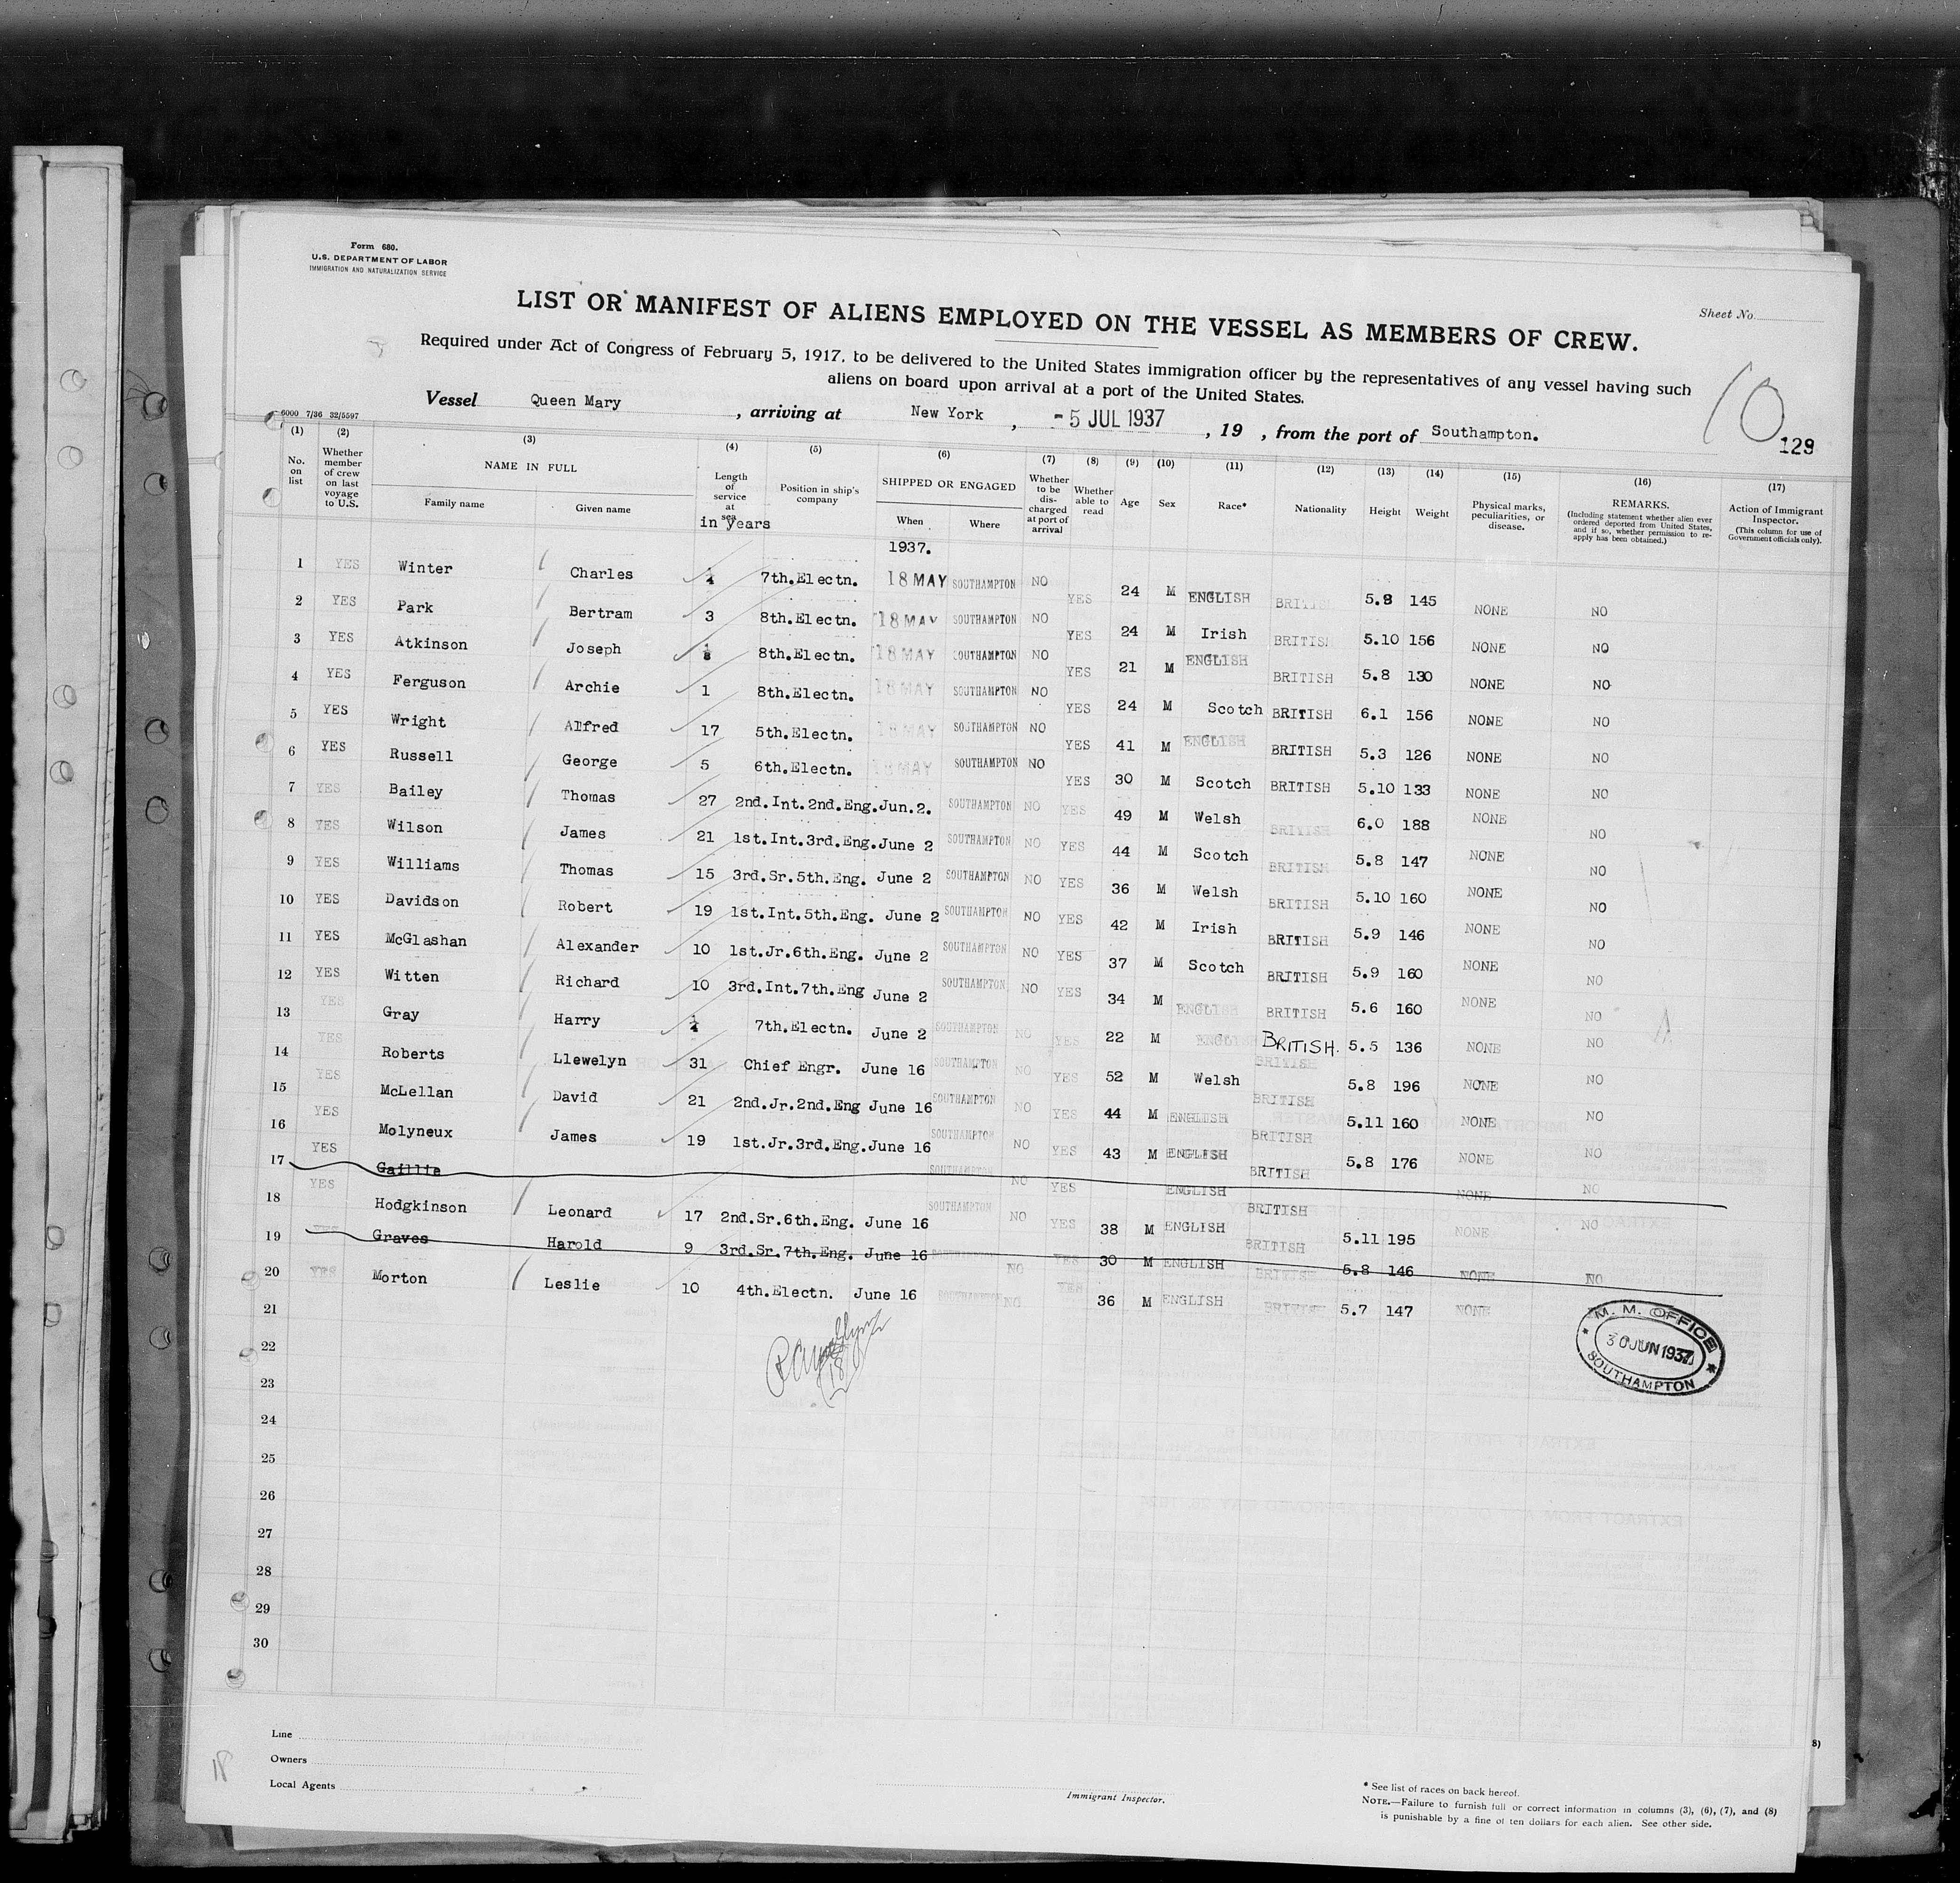 Form 680.
U.S. DEPARTMENT OF LABOR
IMMIGRATION AND NATURALIZATION SERVICE
Sheet No.
LIST OR MANIFEST OF ALIENS EMPLOYED ON THE VESSEL AS MEMBERS OF CREW.
Required under Act of Congress of February 5, 1917, to be delivered to the United States immigration officer by the representatives of any vessel having such
aliens on board upon arrival at a port of the United States.
10
129
6000 7/36 32/5597
Vessel Queen Mary, arriving at New York, -5 JUL 1937, 19 , from the port of Southampton.
(1) (2) (3) (4) (5) (6) (7) (8) (9) (10) (11) (12) (13) (14) (15) (16) (17)
No. on list
Whether member of crew on last voyage to U.S.
NAME IN FULL
Family name
Given name
Length of service at sea
in years
Position in ship's company
SHIPPED OR ENGAGED
When
Where
Whether to be discharged at port of arrival
Whether able to read
Age
Sex
Race*
Nationality
Height
Weight
Physical marks, peculiarities, or disease.
REMARKS.
(Including statement whether alien ever ordered deported from United States, and if so, whether permission to re-apply has been obtained.)
Action of Immigrant Inspector.
(This column for use of Government officials only).
1937.
1 YES Winter Charles 7th.Electn. 18 MAY SOUTHAMPTON NO YES 24 M ENGLISH BRITISH 5.8 145 NONE NO
2 YES Park Bertram 3 8th.Electn. 18 MAY SOUTHAMPTON NO YES 24 M Irish BRITISH 5.10 156 NONE NO
3 YES Atkinson Joseph 8th.Electn. 18 MAY SOUTHAMPTON NO YES 21 M ENGLISH BRITISH 5.8 130 NONE NO
4 YES Ferguson Archie 1 8th.Electn. 18 MAY SOUTHAMPTON NO YES 24 M Scotch BRITISH 6.1 156 NONE NO
5 YES Wright Alfred 17 5th.Electn. 18 MAY SOUTHAMPTON NO YES 41 M ENGLISH BRITISH 5.3 126 NONE NO
6 YES Russell George 5 6th.Electn. 18 MAY SOUTHAMPTON NO YES 30 M Scotch BRITISH 5.10 133 NONE NO
7 YES Bailey Thomas 27 2nd.Int.2nd.Eng. Jun.2. SOUTHAMPTON NO YES 49 M Welsh BRITISH 6.0 188 NONE NO
8 YES Wilson James 21 1st.Int.3rd.Eng. June 2 SOUTHAMPTON NO YES 44 M Scotch BRITISH 5.8 147 NONE NO
9 YES Williams Thomas 15 3rd.Sr.5th.Eng. June 2 SOUTHAMPTON NO YES 36 M Welsh BRITISH 5.10 160 NONE NO
10 YES Davidson Robert 19 1st.Int.5th.Eng. June 2 SOUTHAMPTON NO YES 42 M Irish BRITISH 5.9 146 NONE NO
11 YES McGlashan Alexander 10 1st.Jr.6th.Eng. June 2 SOUTHAMPTON NO YES 37 M Scotch BRITISH 5.9 160 NONE NO
12 YES Witten Richard 10 3rd.Int.7th.Eng June 2 SOUTHAMPTON NO YES 34 M ENGLISH BRITISH 5.6 160 NONE NO
13 YES Gray Harry 7th.Electn. June 2 SOUTHAMPTON NO YES 22 M ENGLISH BRITISH. 5.5 136 NONE NO
14 YES Roberts Llewelyn 31 Chief Engr. June 16 SOUTHAMPTON NO YES 52 M Welsh BRITISH 5.8 196 NONE NO
15 YES McLellan David 21 2nd.Jr.2nd.Eng June 16 SOUTHAMPTON NO YES 44 M ENGLISH BRITISH 5.11 160 NONE NO
16 YES Molyneux James 19 1st.Jr.3rd.Eng. June 16 SOUTHAMPTON NO YES 43 M ENGLISH BRITISH 5.8 176 NONE NO
17 YES Gaillie SOUTHAMPTON NO YES ENGLISH BRITISH NONE NO
18 YES Hodgkinson Leonard 17 2nd.Sr.6th.Eng. June 16 SOUTHAMPTON NO YES 38 M ENGLISH BRITISH 5.11 195 NONE NO
19 YES Graves Harold 9 3rd.Sr.7th.Eng. June 16 SOUTHAMPTON NO YES 30 M ENGLISH BRITISH 5.8 146 NONE NO
20 YES Morton Leslie 10 4th.Electn. June 16 SOUTHAMPTON NO YES 36 M ENGLISH BRITISH 5.7 147 NONE
21
22
23
24
25
26
27
28
29
30
M. M. OFFICE
30 JUN 1937
SOUTHAMPTON
18
Line
Owners
Local Agents
Immigrant Inspector.
* See list of races on back hereof.
NOTE.—Failure to furnish full or correct information in columns (3), (6), (7), and (8)
is punishable by a fine of ten dollars for each alien. See other side.